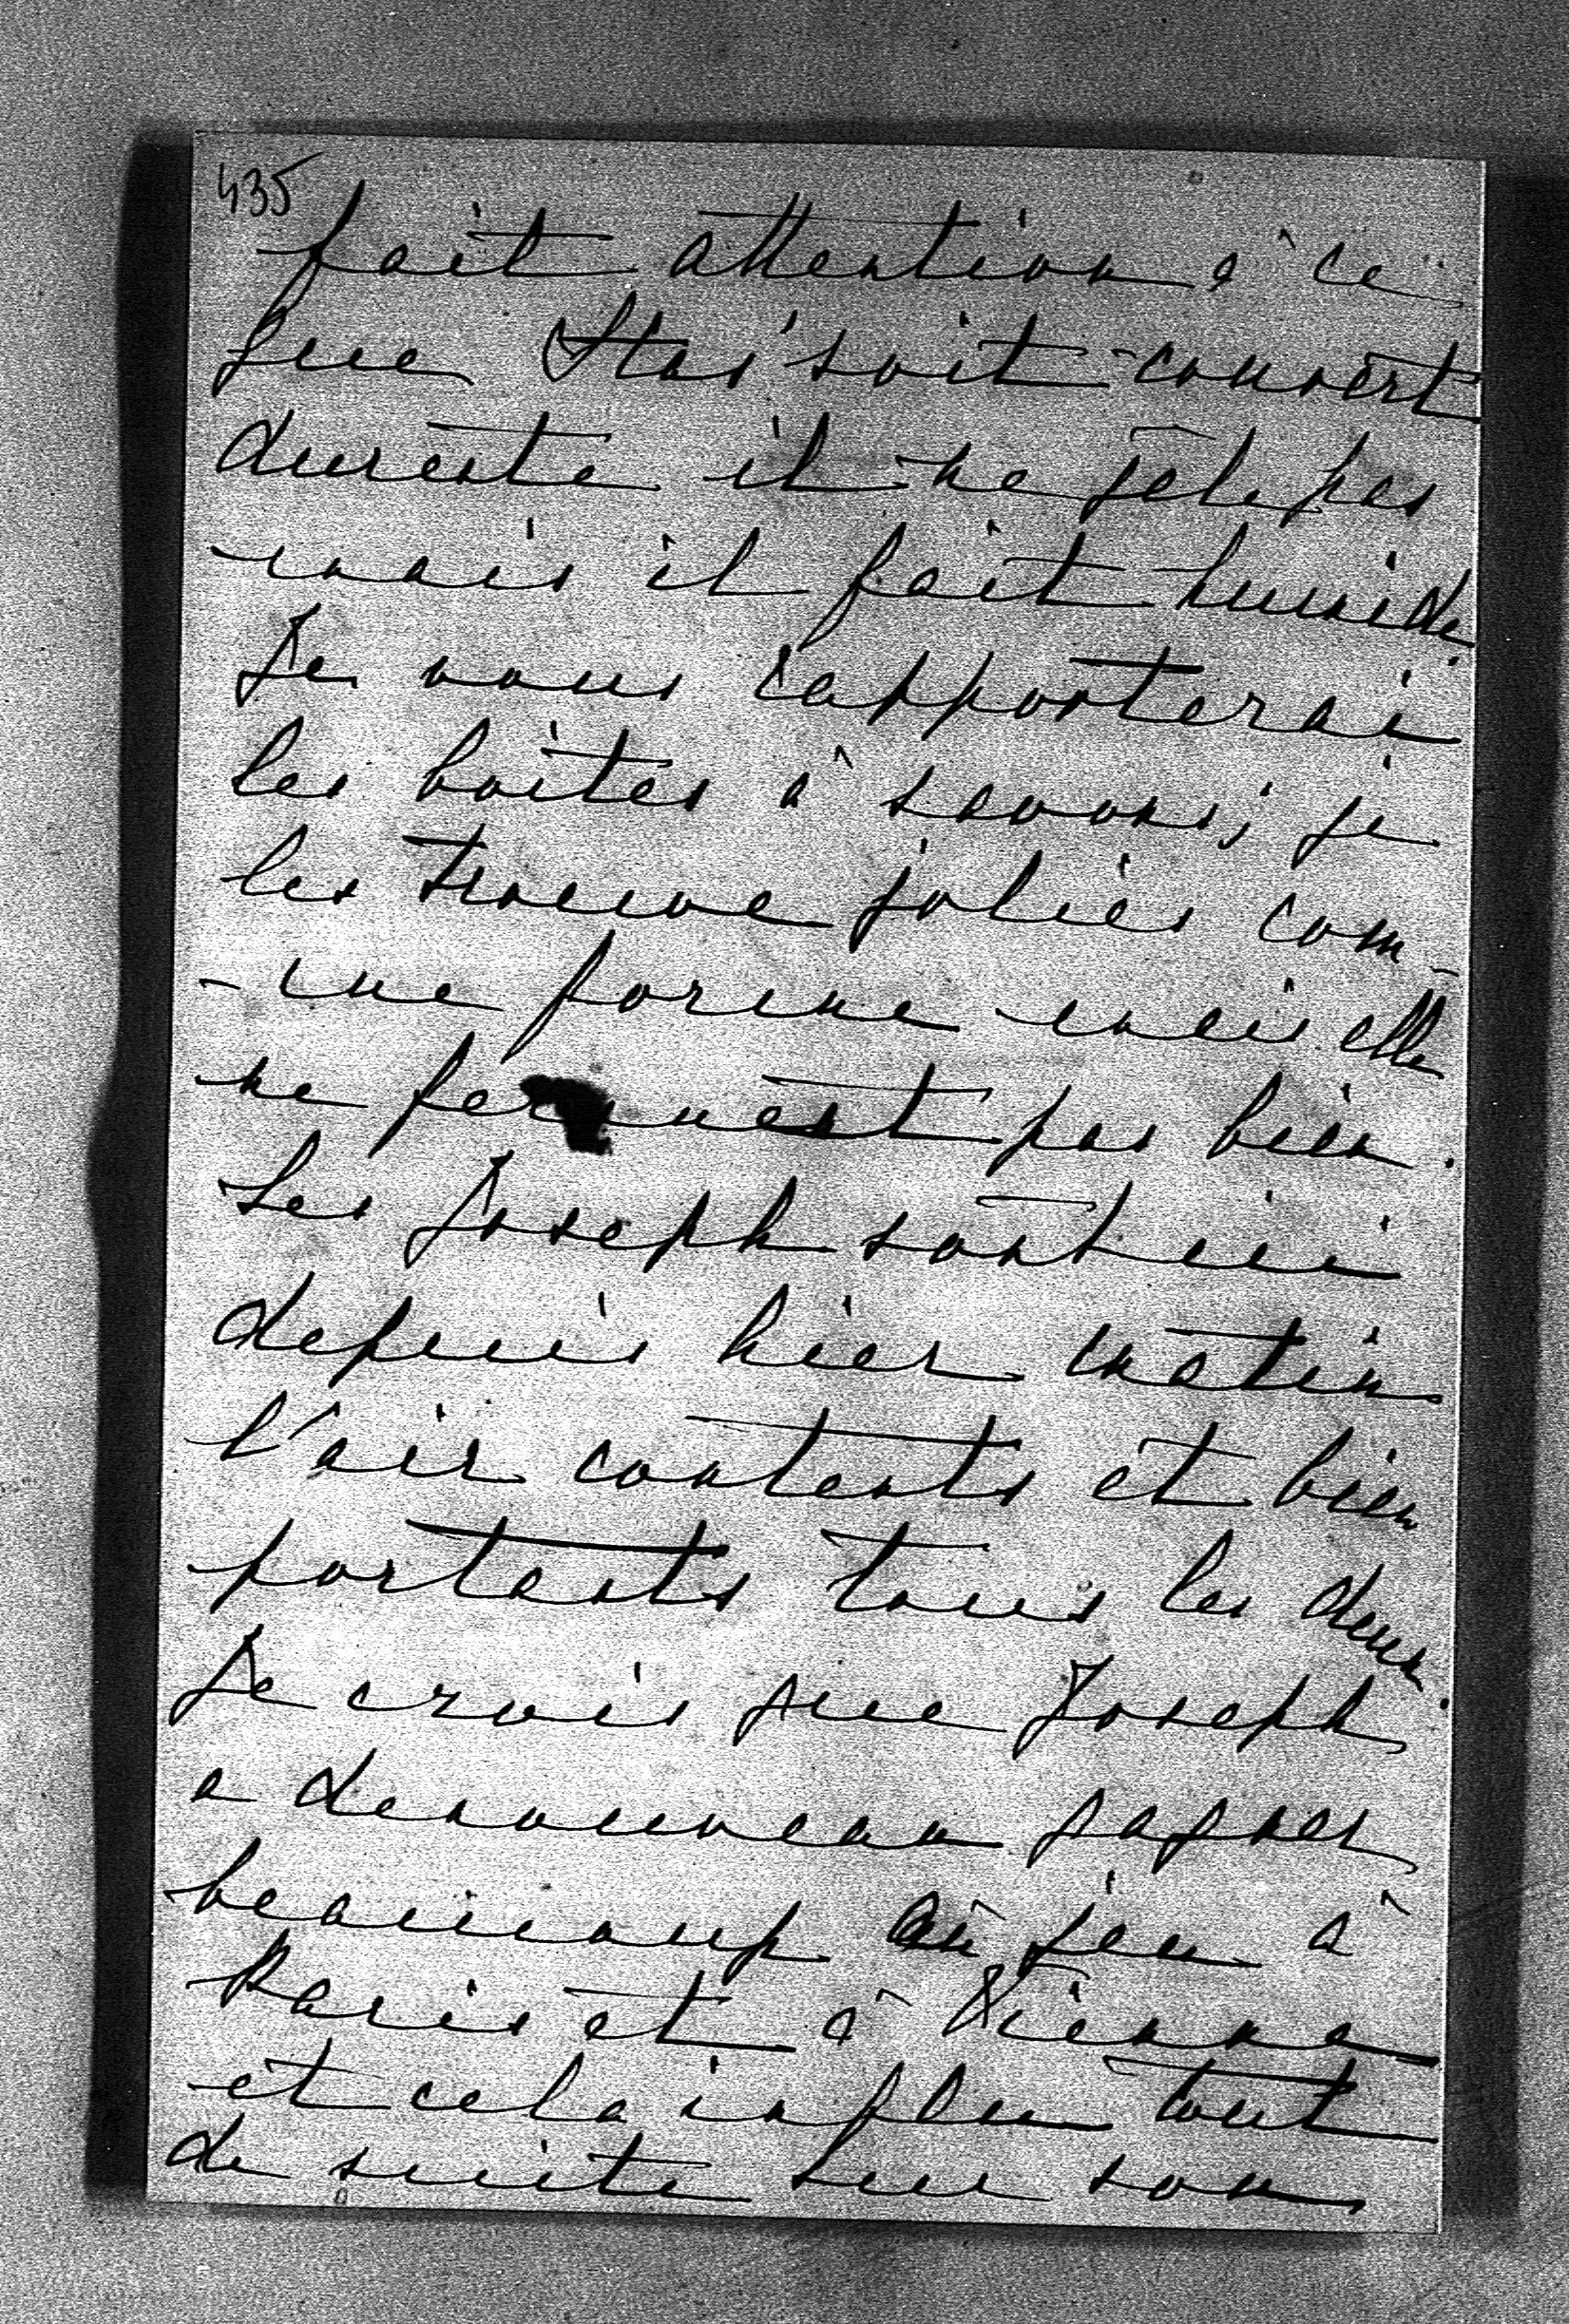 435
fait attention à ce
que Stas' soit couvert
dureste il ne gèle pas
mais il fait humide.
Je vous rapporterai
les boîtes à savons; je
les trouve jolies com-
-me forme mais elle
ne ferment pas bien.
Les Joseph sont ici
depuis hier matin
l'air contents et bien
portants tous les deux.
Je crois que Joseph
a denouveau gagner
beaucoup au jeu à
Paris et à Vienne
et cela influe tout
de suite sur son